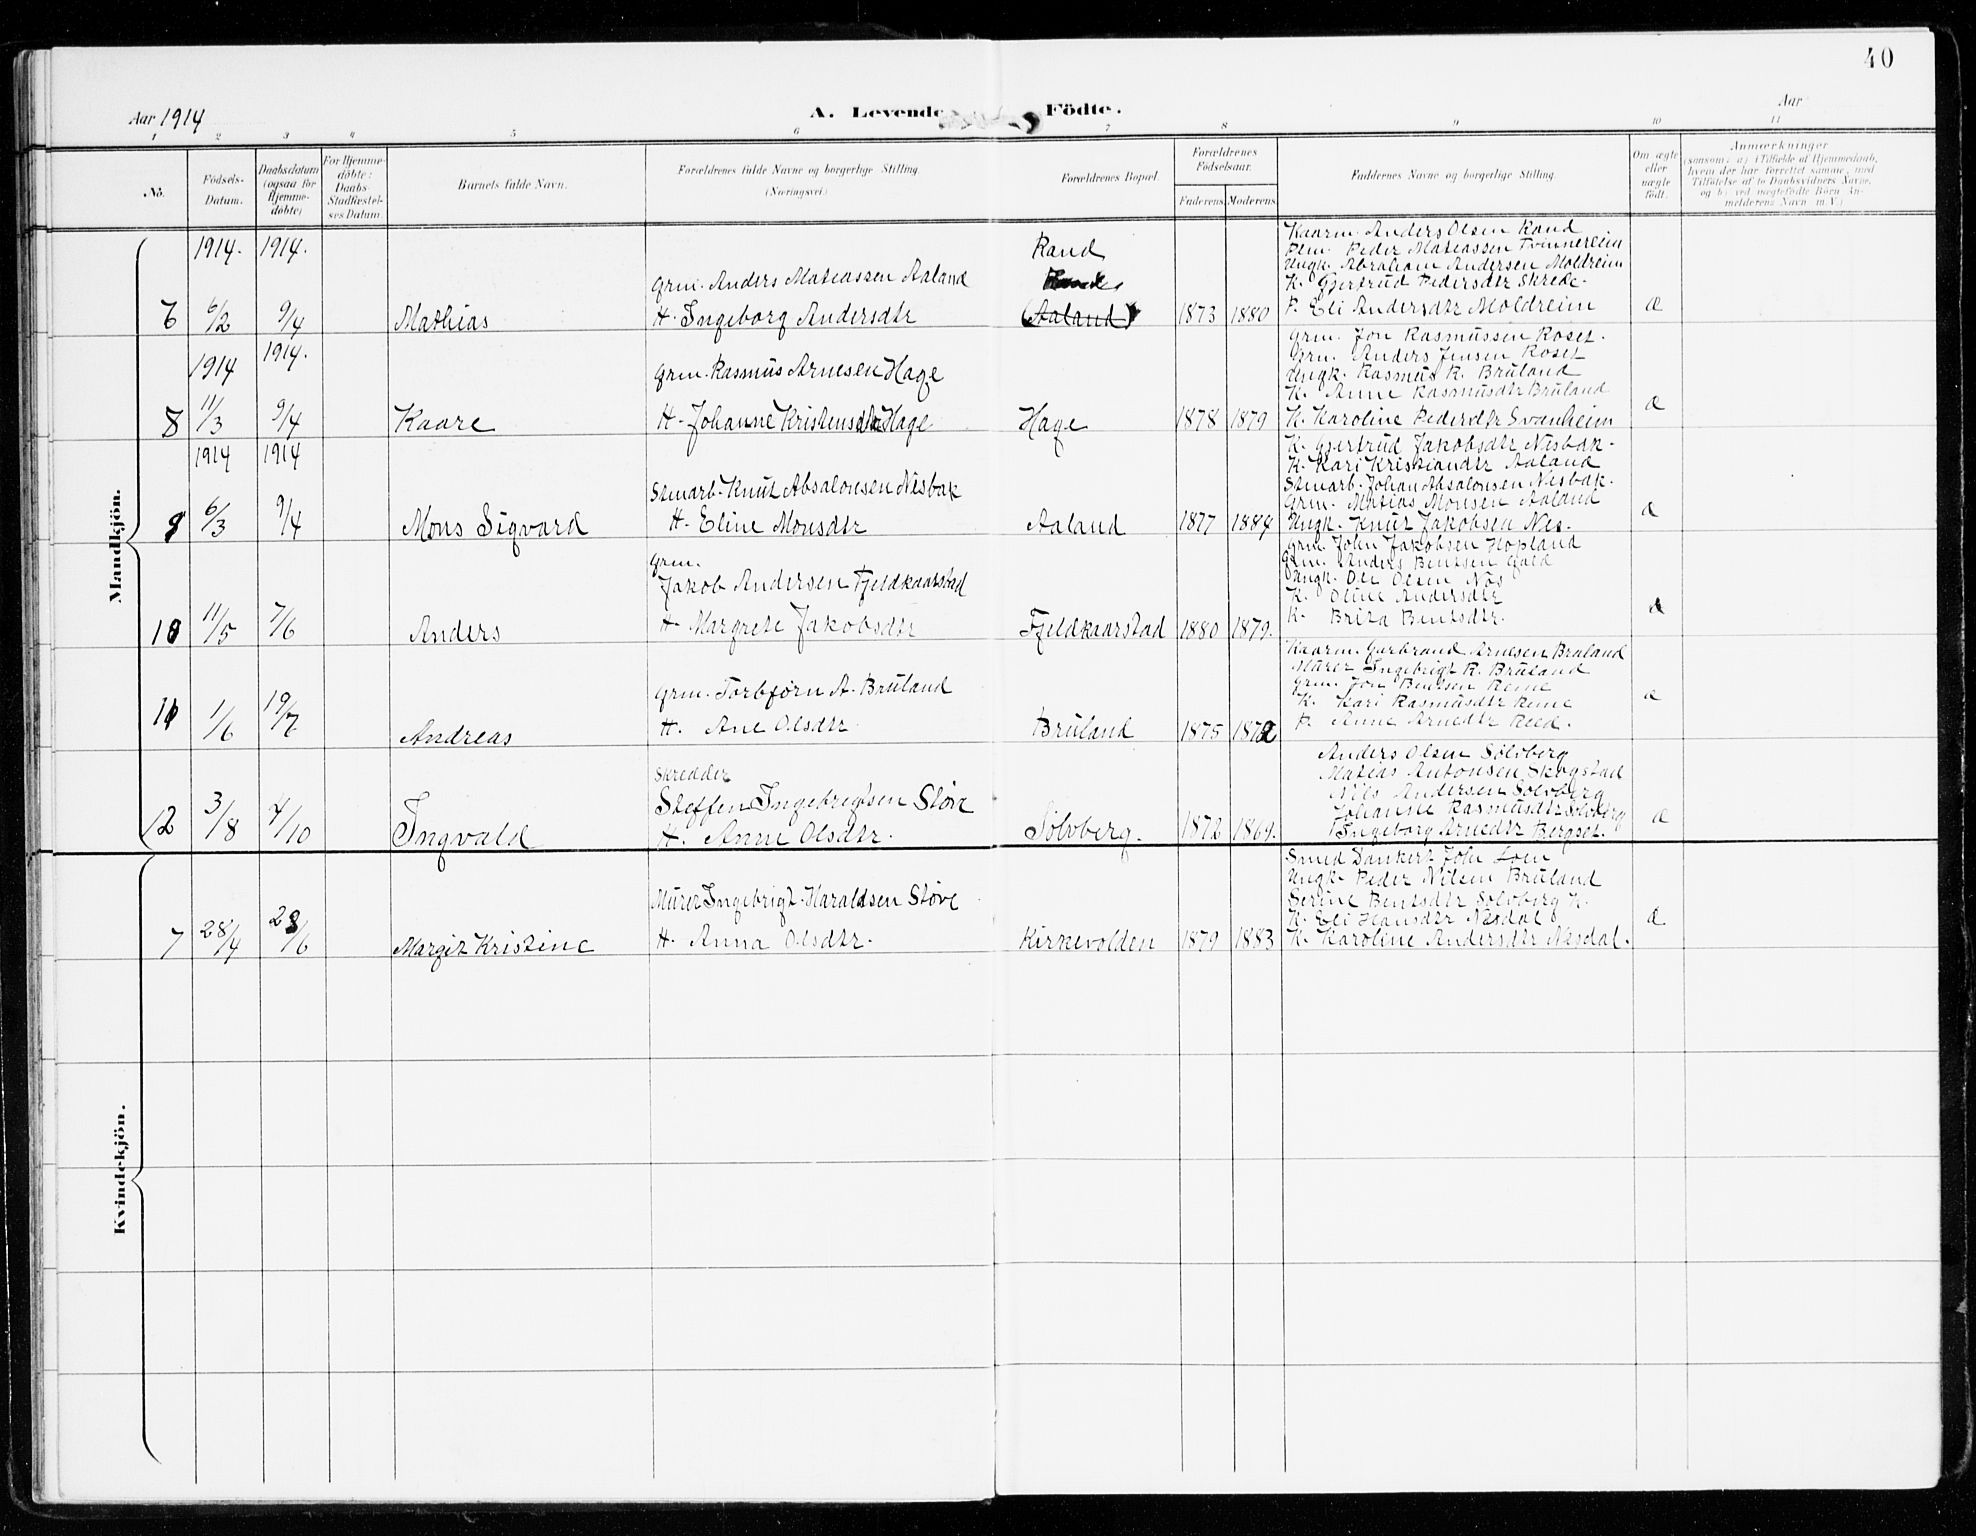 40
Aar 1914
A. Levende Födte.
Aar
1 2 3 4 5 6 7 8 9 10 11
No.
Födsels-Datum.
Daabsdatum (ogsaa for Hjemme-döbte)
For Hjemme-döbte: Daabs-Stadfæstel-ses Datum.
Barnets fulde Navn.
Forældrenes fulde Navne og borgerlige Stilling
(Næringsvei.)
Forældrenes Bopæl.
Forældrenes Födselsaar.
Faderens. Moderens.
Faddernes Navne og borgerlige Stilling.
Om ægte eller uægte födt.
Anmærkninger
(saasom: a) i Tilfælde af Hjemmedaab,
hvem der har forrettet samme, med
Tilföielse af to Daabsvidners Navne,
og b) ved uægtefödte Börn An-
melderens Navn m. V.)
Mandkjön.
1914. 1914.
6 6/2 9/4 Mathias
Grm. Anders Mateassen Aaland
H. Ingeborg Andersdtr
Rand
(Aaland)
1873 1880
Kaarm. Anders Olsen Rand
Peder Mateassen Tvinnereim
Ungk. Abraham Andersen Moldreim
K. Gjertrud Pedersdtr Skrede.
P. Eli Andersdtr Moldreim
æ
1914 1914.
8 11/3 9/4 Kaare
Grm. Rasmus Arnesen Hage
H. Johanne Kristensdtr Hage
Hage
1878 1879
Grm. Jon Rasmussen Roset.
Grm. Anders Jensen Roset
Ungk. Rasmus R. Bruland
K. Anne Rasmusdtr Bruland
K. Karoline Pedersdtr Svanheim
æ
1914 1914
6/3 9/4 Mons Sigvard
Stmarb. Knut Absalonsen Nesbak
H. Eline Monsdtr
Aaland
1877 1884
K. Gjertrud Jakobsdtr Nesbak.
K. Kari Kristiandtr Aaland
Stmarb. Johan Absalonsen Nesbak.
Grm. Matias Monsen Aaland
Ungk. Knut Jakobsen Nes.
æ
10 11/5 7/6 Anders
Grm.
Jakob Andersen Fjeldkaarstad
H. Margrete Jakobsdtr
Fjeldkaarstad
1880 1879.
Grm. John Jakobsen Hopland
Grm. Anders Bentsen
Ungk. Ole Olsen Nos
K. Oline Andersdtr
K. Brita Bentsdtr.
æ
11 1/6 19/7 Andreas
Grm. Torbjørn A. Bruland
H. Ane Olsdtr.
Bruland
1875 1872
Kaarm. Garbrand Arnesen Bruland
Murer Ingebrigt R. Bruland
Grm. Jon Bentsen Reme
K. Kari Rasmusdtr Reme
P. Anne Arnedtr Reed.
æ
12 3/8 4/10 Ingvald
Skredder
Steffen Ingebrigtsen Støve
H. Anne Olsdtr.
Solvberg.
1872 1869.
Anders Olsen Sølvberg
Matias Antonsen Skogstad
Nils Andersen Solvberg
Johanne Rasmusdtr Solvberg
Ingeborg Arnedtr Bergset.
æ
Kvindekjön.
7 28/4 28/6 Margit Kristine
Murer Ingebrigt Haraldsen Støve
H. Anna Olsdtr.
Kirkevolden
1879 1883
Smed Dankert John Loen
Ungk. Peder Nilsen Bruland
Serine Bentsdtr Solvberg K.
K. Eli Hansdtr Nesdal
K. Karoline Andersdtr Nesdal.
æ